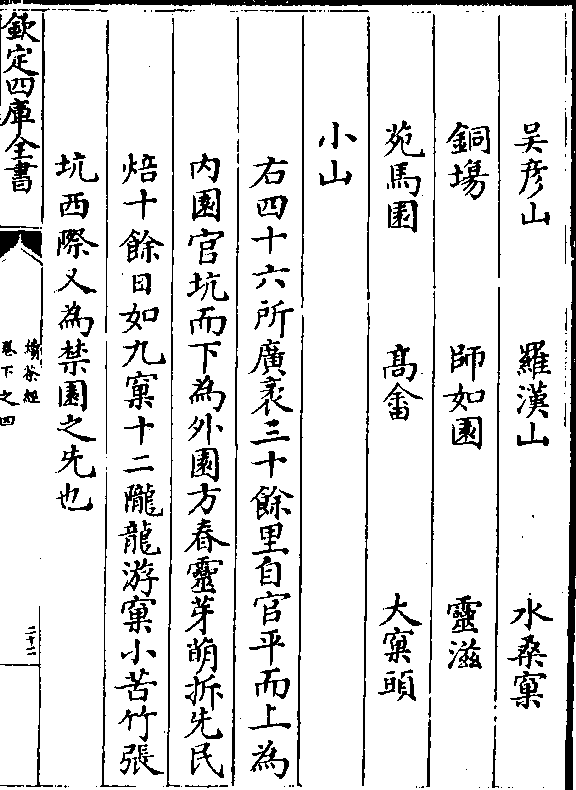 吴彦山　羅漢山　水桑窠
銅塲　師如園　靈滋
苑馬園　髙畬　大窠頭
小山
右四十六所廣袤三十餘里自官平而上為
内園官坑而下為外園方春靈芽萌拆先民
焙十餘日如九窠十二隴龍游窠小苦竹張
坑西際又為禁園之先也
欽定四庫全書
續茶經
卷下之四
二十二